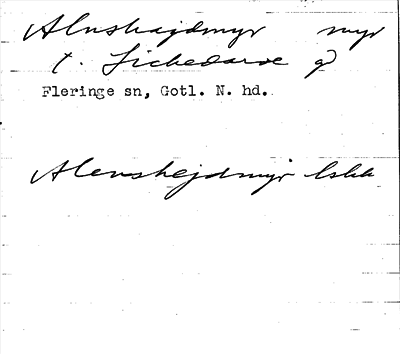 Alnshajdmyr myr
t. Lickedarve gd
Fleringe sn, Gotl. N. hd.
Alenshejdmyr